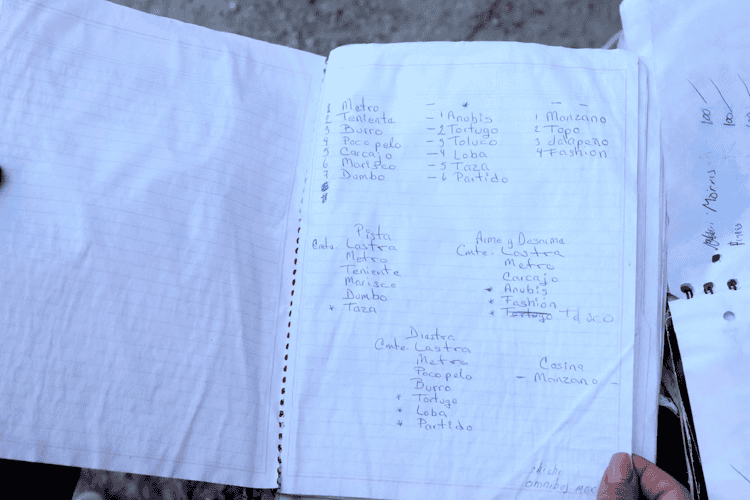 1 Metro
2 Teniente
3 Burro
4 Pocopelo
5 Carcajo
6 Marisco
7 Dumbo
8
9
- 1 Anubis
- 2 Tortugo
- 3 Toluco
- 4 Loba
- 5 Taza
- 6 Partido
1 Manzano
2 Topo
3 Jalapeño
4 Fashion
Pista
Cmte. Lastra
Metro
Teniente
Marisco
Dumbo
* Taza
Arme y Desarme
Cmte. Lastra
Metro
Carcajo
* Anubis
* Fashion
* Tortugo Toluco
Diestra
Cmte. Lastra
Metro
Pocopelo
Burro
* Tortugo
* Loba
* Partido
Cosina
- Manzano -
omnibus MEX
100
100